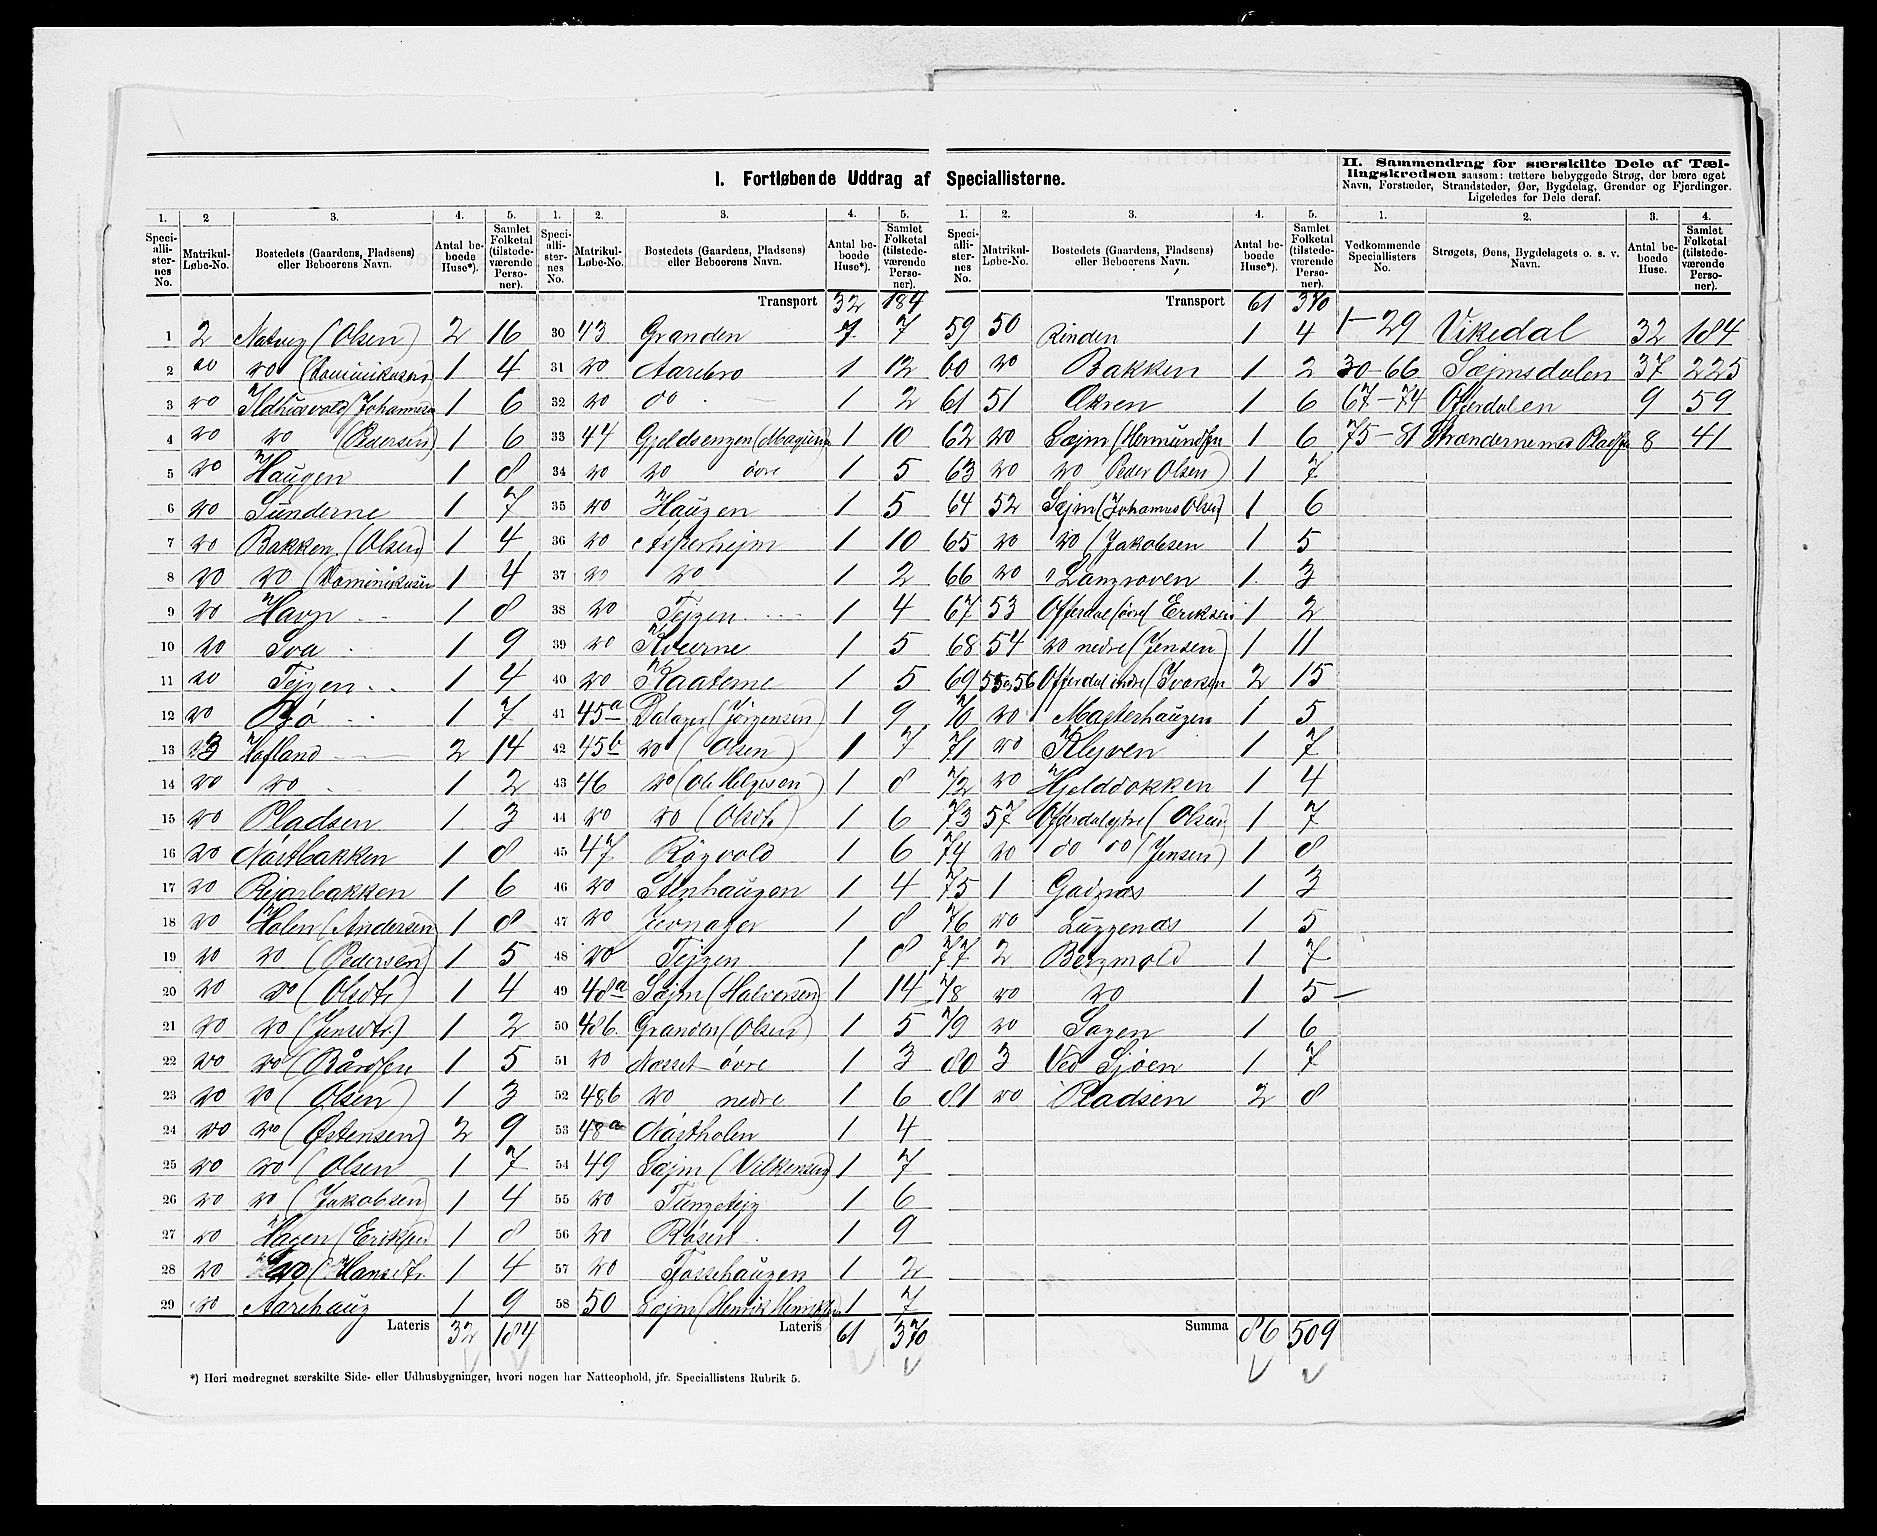 I. Fortløbende Uddrag af Speciallisterne.
II. Sammendrag for særskilte Dele af Tæl-
lingskredsen saasom: tættere bebyggede Strøg, der bære eget
Navn, Forstæder, Strandsteder, Øer, Bygdelag, Grender og Fjerdinger.
Ligeledes for Dele deraf.
1. 2 3. 4. 5. 1. 2. 3. 4. 5. 1. 2. 3. 4. 5. 1. 2. 3. 4.
Speciallisternes No. Matrikul-Løbe-No. Bostedets (Gaardens, Pladsens) eller Beboerens Navn. Antal beboede Huse*). Samlet Folketal (tilstedeværende Personer).
Speciallisternes No. Matrikul-Løbe-No. Bostedets (Gaardens, Pladsens) eller Beboerens Navn. Antal beboede Huse*). Samlet Folketal (tilstedeværende Personer).
Speciallisternes No. Matrikul-Løbe-No. Bostedets (Gaardens, Pladsens) eller Beboerens Navn. Antal beboede Huse*). Samlet Folketal (tilstedeværende Personer).
Vedkommende Speciallisters No. Strøgets, Øens, Bygdelagets o. s. v. Navn. Antal beboede Huse. Samlet Folketal (tilstedeværende Personer).
1 2 Natvig (Olsen) 2 16
2 do do (Dominikusen) 1 4
3 do (Johannesen 1 6
4 do do (Pedersen) 1 6
5 do Haugen 1 8
6 do Sunderne 1 7
7 do Bakken (Olsen) 1 4
8 do do (Dominikusen 1 4
9 do Havn 1 8
10 do 1 9
11 do Tejgen 1 4
12 do 1 7
13 3 Hofland 2 14
14 do do 1 2
15 do Pladsen 1 3
16 do Nøstbakken 1 8
17 do 1 6
18 do Holen (Andersen) 1 8
19 do do (Pedersen) 1 5
20 do do (Olsdtr) 1 4
21 do do (Jensdtr.) 1 2
22 do do (Bårdsen 1 5
23 do do (Olsen) 1 3
24 do do (Østensen) 2 9
25 do do (Olsen 1 7
26 do do (Jakobsen) 1 4
27 do Hagen (Eriksen 1 8
28 do do (Hansdtr. 1 4
29 do Aarehaug 1 9
Lateris 32 184
Transport 32 184
30 43 Granden 1 7
31 do Aarebro 1 12
32 do do 1 2
33 44 Gjeldsengen (Magnus 1 10
34 do do øvre 1 5
35 do Haugen 1 5
36 do Asperhejm 1 10
37 do do 1 2
38 do Tejgen 1 4
39 do Kvierne 1 5
40 do Kaaterne 1 5
41 45a Dalager (Jørgensen) 1 9
42 45b do (Olsen) 1 7
43 46 do (Ole Helgesen) 1 8
44 do do (Olsdtr) 1 6
45 47 Røgvold 1 6
46 do Stenhaugen 1 4
47 do Jevnager 1 8
48 do Tejgen 1 8
49 48a Sejm (Halvorsen) 1 14
50 48b. Granden (Olsen) 1 5
51 do Nosset øvre 1 3
52 48b do nedre 1 6
53 48a Nøstholen 1 4
54 49 Sejm (Vilkensen) 1 7
55 do Tungetejg 1 6
56 do Røsen 1 9
57 do Fossehaugen 1 2
58 50 Sejm (Henrik 1 7
Lateris 61 370
Transport 61 370
59 50 Rinden 1 4
60 do Bakken 1 2
61 51 Ækren 1 6
62 do Sejm (Hermundsen 1 6
63 do do (Peder Olsen) 1 7
64 52 Sejm (Johannes Olsen) 1 6
65 do do (Jakobsen 1 5
66 do Langroven 1 3
67 53 Offerdal øvre (Eriksen 1 2
68 54 do nedre (Jensen) 1 11
69 55 56 Offerdal indre (Ivarsen 2 15
70 do Masterhaugen 1 5
71 do Klyven 1 7
72 do Hjelddokken 1 4
73 57 Offerdal ytre (Olsen 1 7
74 do do do (Jensen) 1 8
75 1 Gadnæs 1 3
76 do Luggenæs 1 5
77 2 Bergmold 1 7
78 do do 1 5
79 do Sagen 1 6
80 3 Ved Sjøen 1 7
81 do Pladsen 2 8
Summa 86 509
1-29 Vikedal 32 184
30-66 Sejmsdalen 37 225
67-74 Offerdalen 9 59
75-81 Strænderne med 8 41
*) Heri medregnet særskilte Side- eller Udhusbygninger, hvori nogen har Natteophold, jfr. Speciallistens Rubrik 5.